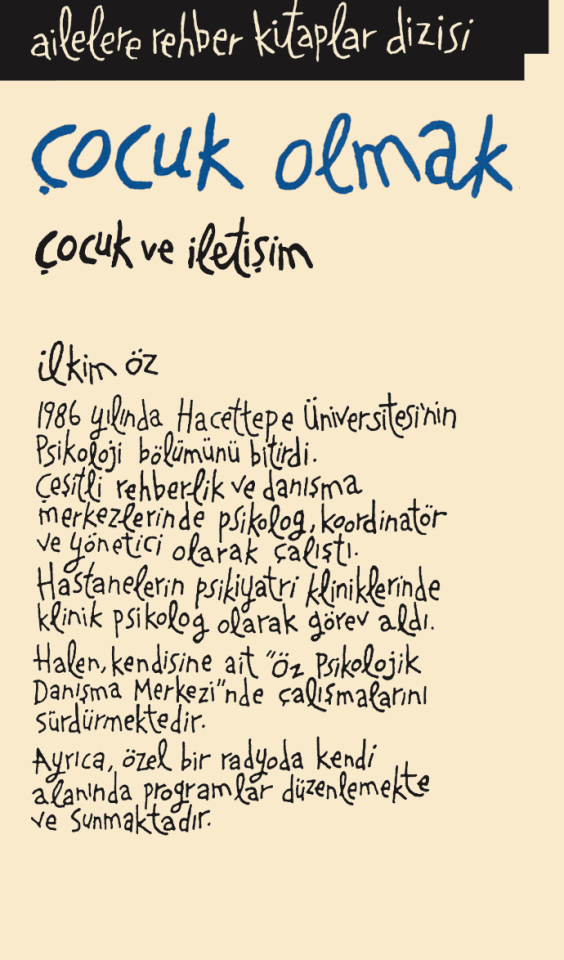 ailelere rehber kitaplar dizisi
çocuk olmak
çocuk ve iletişim
ilkim öz
1986 yılında Hacettepe Üniversitesi'nin
Psikoloji bölümünü bitirdi.
Çeşitli rehberlik ve danışma
merkezlerinde psikolog, koordinatör
ve yönetici olarak çalıştı.
Hastanelerin psikiyatri kliniklerinde
klinik psikolog olarak görev aldı.
Halen, kendisine ait "Öz Psikolojik
Danışma Merkezi"nde çalışmalarını
sürdürmektedir.
Ayrıca, özel bir radyoda kendi
alanında programlar düzenlemekte
ve sunmaktadır.